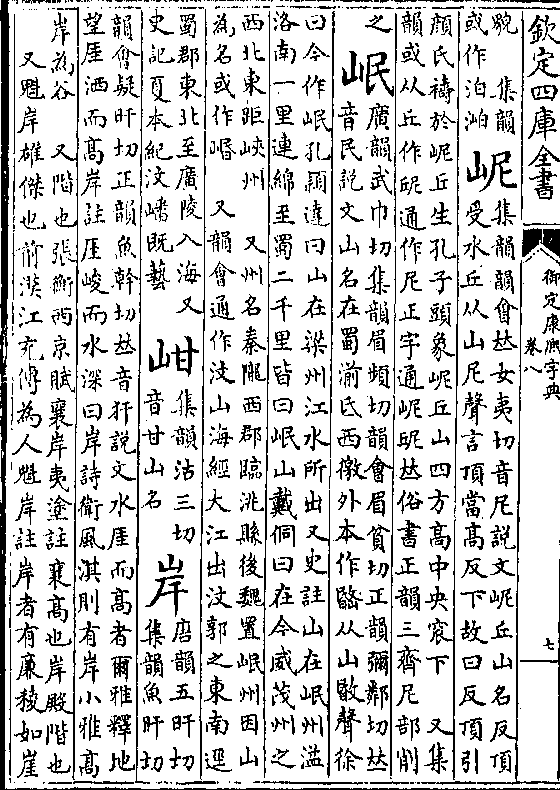 欽定四庫全書
御定康熙字典
卷八
七
貌　集韻
或作泊洦
㞾
集韻韻會𠀤女夷切音尼說文㞾丘山名反頂
受水丘从山尼聲言頂當髙反下故曰反頂引
顏氏禱於㞾丘生孔子頭象㞾丘山四方高中央窊下　又集
韻或从丘作屔通作尼正字通㞾屔𠀤俗書正韻三齊尼部削
之
岷
廣韻武巾切集韻眉頻切韻會眉貧切正韻彌鄰切𠀤
音民說文山名在蜀湔氐西徼外本作 从山敃聲徐
曰今作岷孔穎達曰山在梁州江水所出又史註山在岷州溢
洛南一里連綿至蜀二千里皆曰岷山戴侗曰在今威茂州之
西北東距峽州　又州名秦隴西郡臨洮縣後魏置岷州因山
為名或作㟭　又韻會通作汶山海經大江出汶郭之東南逕
蜀郡東北至廣陵入海又
史記夏本紀汶嶓既藝
集韻沽三切
音甘山名
岸
唐韻五旰切
集韻魚旰切
韻會疑旰切正韻魚幹切𠀤音犴說文水厓而髙者爾雅釋地
望厓洒而髙岸註厓峻而水深曰岸詩衞風淇則有岸小雅髙
岸為谷　又階也張衡西京賦襄岸夷塗註襄髙也岸殿階也
又魁岸雄傑也前漢江充傳為人魁岸註岸者有廉稜如崖